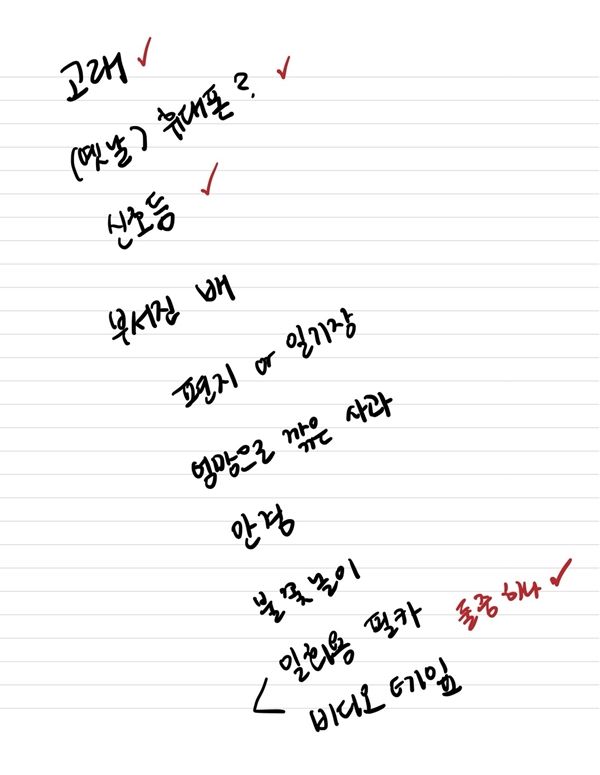 고래 ✓
(옛날) 휴대폰? ✓
신호등 ✓
부서진 배
편지 or 일기장
엉망으로 깎은 사과
안경
불꽃놀이
일회용 필카 둘중 하나 ✓
비디오 테이프